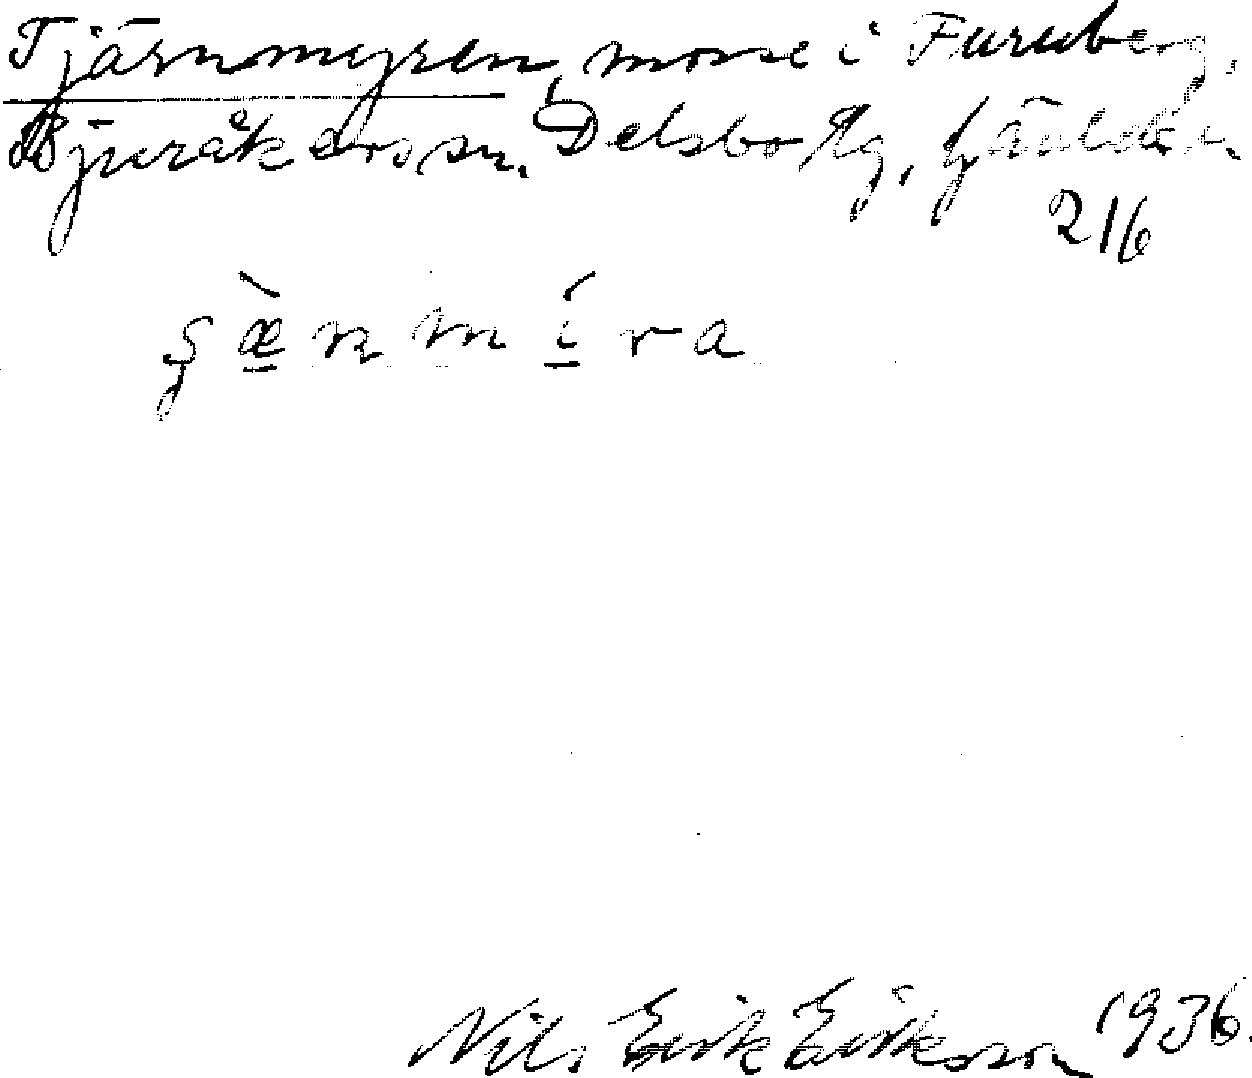 Tjärnmyren, mosse i Furuberg,
Bjuråkers sn. Delsbo tg, Gävleb. l.
216
ʂæ̀nmíra
Nils Erik Eriksson 1936.